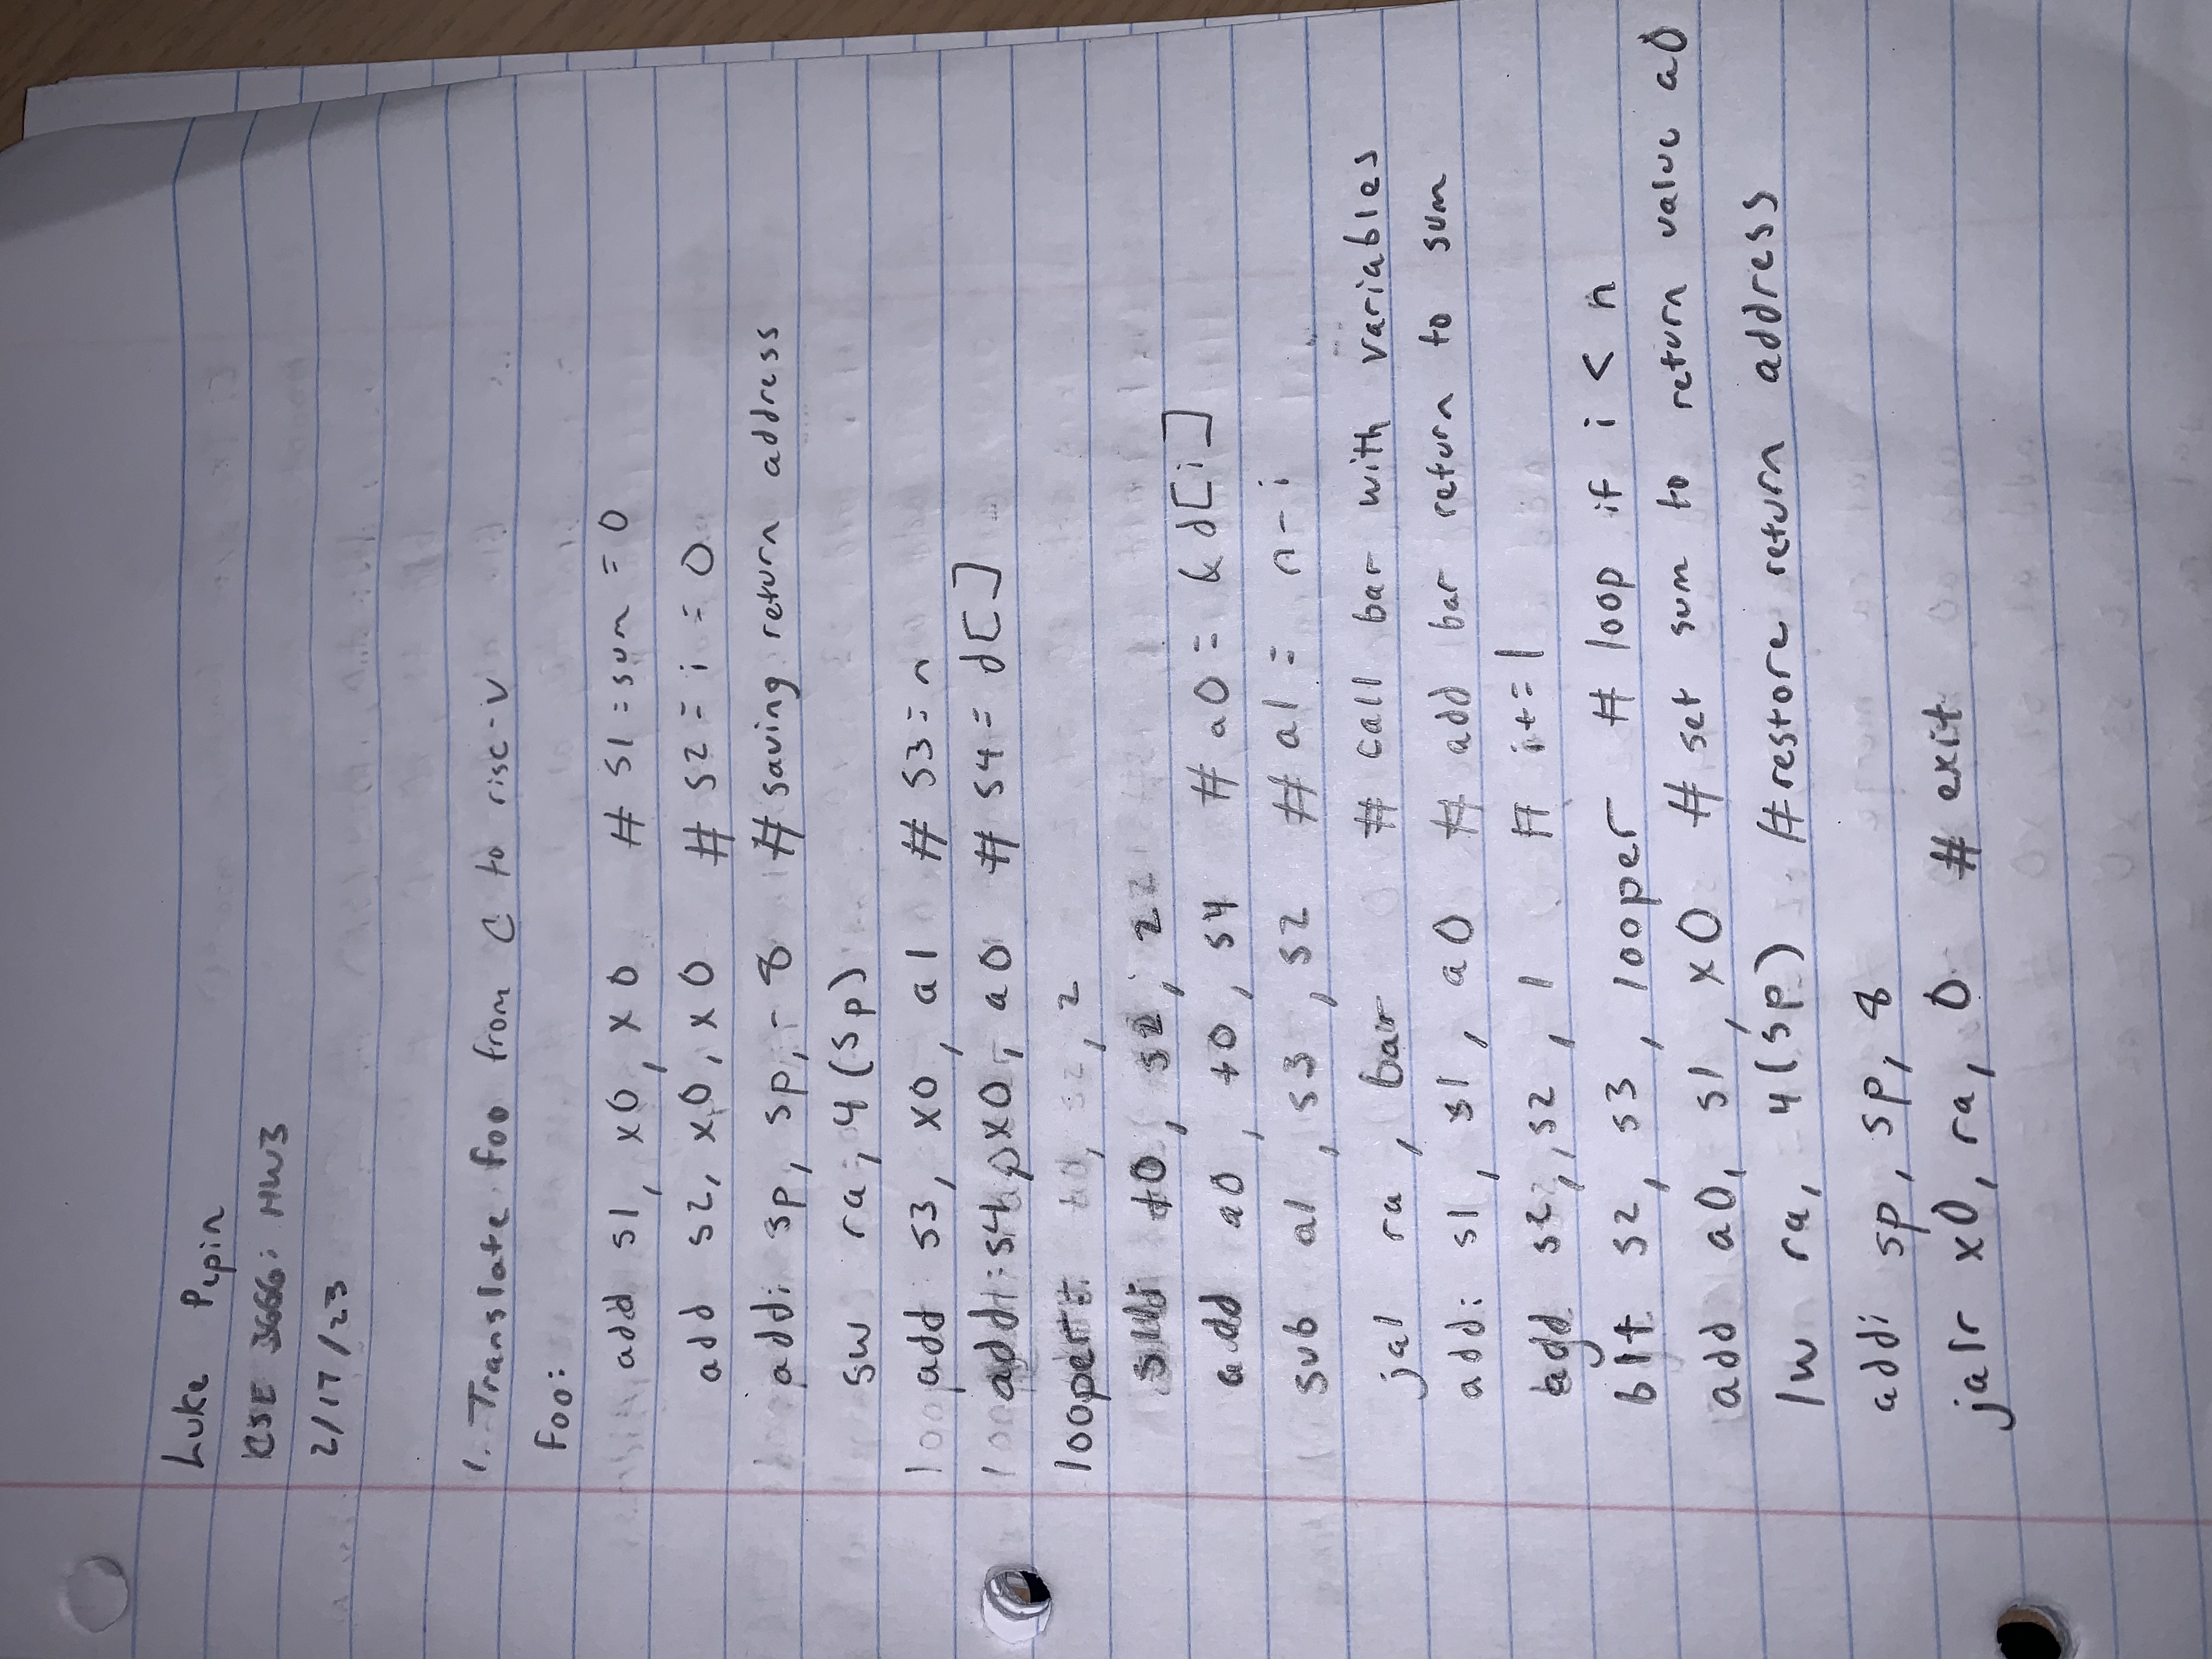 Luke Pepin
CSE 3666: HW3
2/17/23
1. Translate foo from C to risc-v
Foo:
add s1, x0, x0 # s1 = sum = 0
add s2, x0, x0 # s2 = i = 0
addi sp, sp, -8 # saving return address
sw ra, 4(sp)
add s3, x0, a1 # s3 = n
add s4, x0, a0 # s4 = d[]
looper:
slli t0, s2, 2
add a0, t0, s4 # a0 = &d[i]
sub a1, s3, s2 # a1 = n-i
jal ra, bar # call bar with variables
addi s1, s1, a0 # add bar return to sum
add s2, s2, 1 # i+=1
blt s2, s3, looper # loop if i < n
add a0, s1, x0 # set sum to return value a0
lw ra, 4(sp) # restore return address
addi sp, sp, 8
jalr x0, ra, 0 # exit